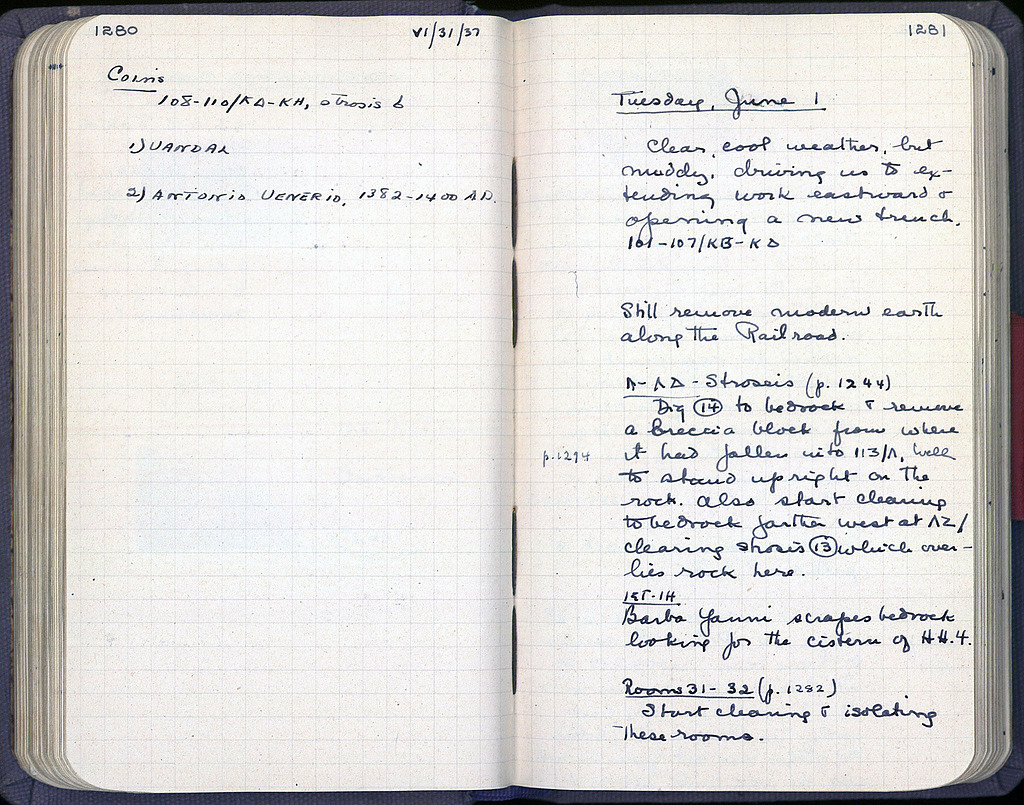 1280
VI/31/37
Coins
108-110/ΚΔ-ΚΗ, strosis 6
1) VANDAL
2) ANTONIO VENERIO, 1382-1400 AD.
1281
Tuesday, June 1
Clear, cool weather, but
muddy, driving us to ex-
tending work eastward &
opening a new trench.
101-107/ΚΒ-ΚΔ
Still remove modern earth
along the Railroad.
Λ-ΛΔ-Stroseis (p. 1244)
Dig 14 to bedrock & remove
a breccia block from where
it had fallen into 113/Λ, well
p.1294
to stand upright on the
rock. Also start clearing
to bedrock farther west at ΛΖ/
clearing strosis 13 which over-
lies rock here.
Barba Yanni scrapes bedrock
looking for the cistern of HH.4.
Rooms 31-32 (p. 1282)
Start clearing & isolating
These rooms.